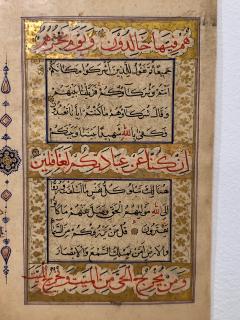 هم فيها خالدون ويوم نحشرهم
جميعا ثم نقول للذين اشركوا مكانكم
انتم وشركاؤكم فزيلنا بينهم
وقال شركاؤهم ما كنتم ايانا تعبدون
فكفى بالله شهيدا بيننا وبينكم
ان كنا عن عبادتكم لغافلين
هنالك تبلو كل نفس ما اسلفت وردوا
الى الله موليهم الحق وضل عنهم ما كانوا
يفترون قل من يرزقكم من السماء
والارض امن يملك السمع والابصار
ومن يخرج الحي من الميت ويخرج الميت